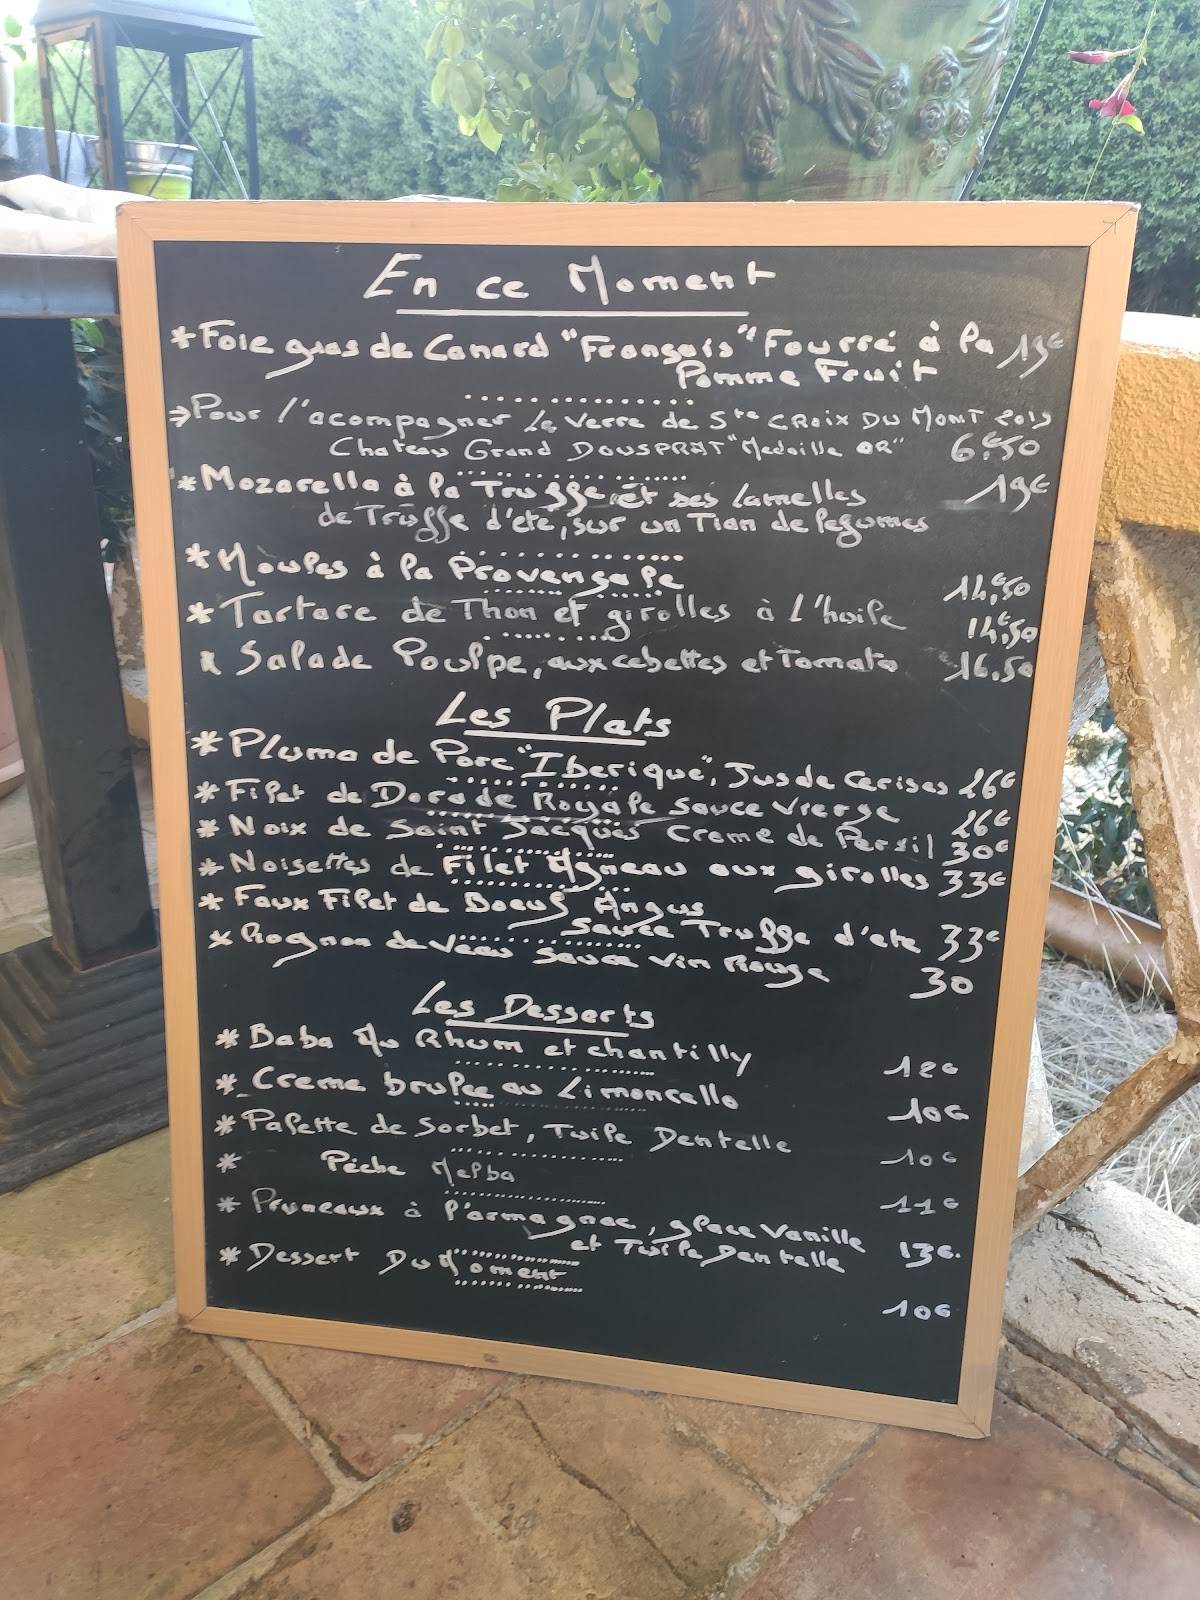 En ce Moment
*Foie gras de Canard "Français" Fourré à la 19€
Pomme Fruit
→Pour l'acompagner Le Verre de Ste CROIX DU MONT 2019
Chateau Grand DOUSPRAT "Medaille OR" 6€50
*Mozarella à la Truffe et ses Lamelles 19€
de Truffe d'été, sur un Tian de legumes
*Moules à la Provençale 14€50
*Tartare de Thon et girolles à L'huile 14€50
* Salade Poulpe, aux cebettes et Tomate 16.50
Les Plats
*Pluma de Porc "Iberique", Jus de Cerises 26€
*Filet de Dorade Royale Sauce Vierge 26€
*Noix de Saint Jacques Creme de Persil 30€
*Noisettes de Filet Agneau aux girolles 33€
*Faux Filet de Boeuf Angus
Sauce Truffe d'été 33€
*Rognon de Veau Sauce Vin Rouge 30
Les Desserts
*Baba Au Rhum et chantilly 12€
*Creme brulee au Limoncello 10€
*Palette de Sorbet, Tuile Dentelle 10€
* Pêche Melba 11€
*Pruneaux à l'armagnac, glace Vanille
et Tuile Dentelle 13€.
*Dessert Du Moment 10€